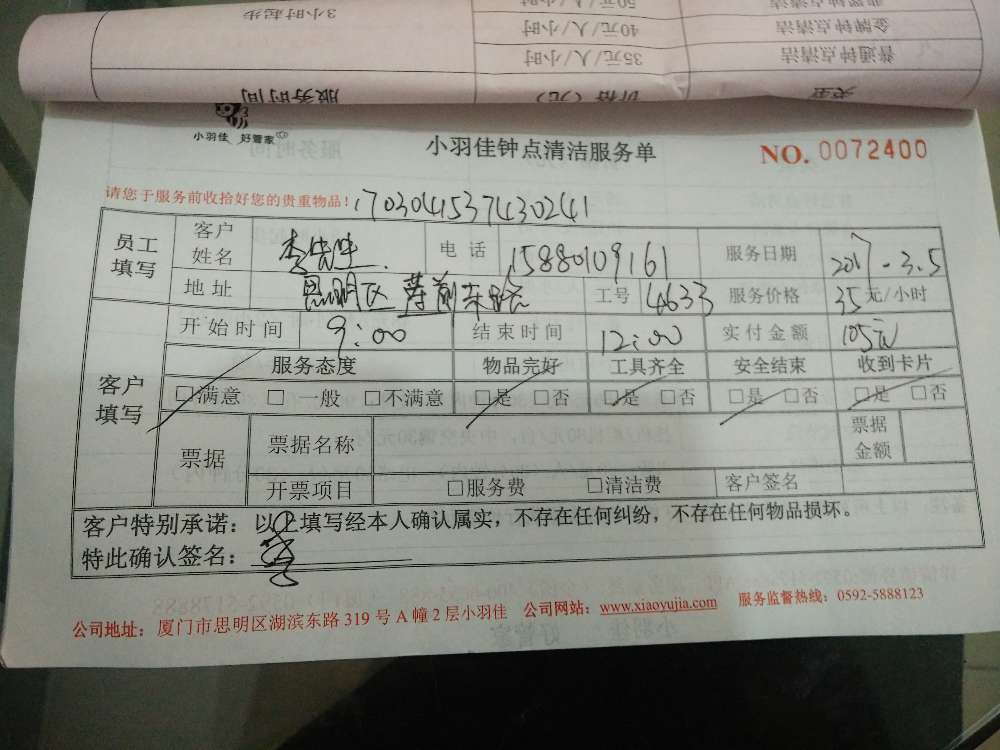 3小时起步
50元/人/小时
40元/人/小时
金牌钟点清洁
35元/人/小时
普通钟点清洁
服务时间
价格(元)
类型
小羽佳 好管家
小羽佳钟点清洁服务单
NO. 0072400
请您于服务前收拾好您的贵重物品!
170304153743024 1
员工填写
客户姓名
电话 15880109161
服务日期 2017-3.5
地址 思明区
工号 4633
服务价格 35元/小时
开始时间 9:00
结束时间 12:00
实付金额 105元
客户填写
服务态度 物品完好 工具齐全 安全结束 收到卡片
□满意 □一般 □不满意 □是 □否 □是 □否 □是 □否 □是 □否
票据
票据名称
票据金额
开票项目 □服务费 □清洁费 客户签名
客户特别承诺:以上填写经本人确认属实,不存在任何纠纷,不存在任何物品损坏。
特此确认签名:
公司地址:厦门市思明区湖滨东路319号A幢2层小羽佳 公司网站:www.xiaoyujia.com 服务监督热线:0592-5888123